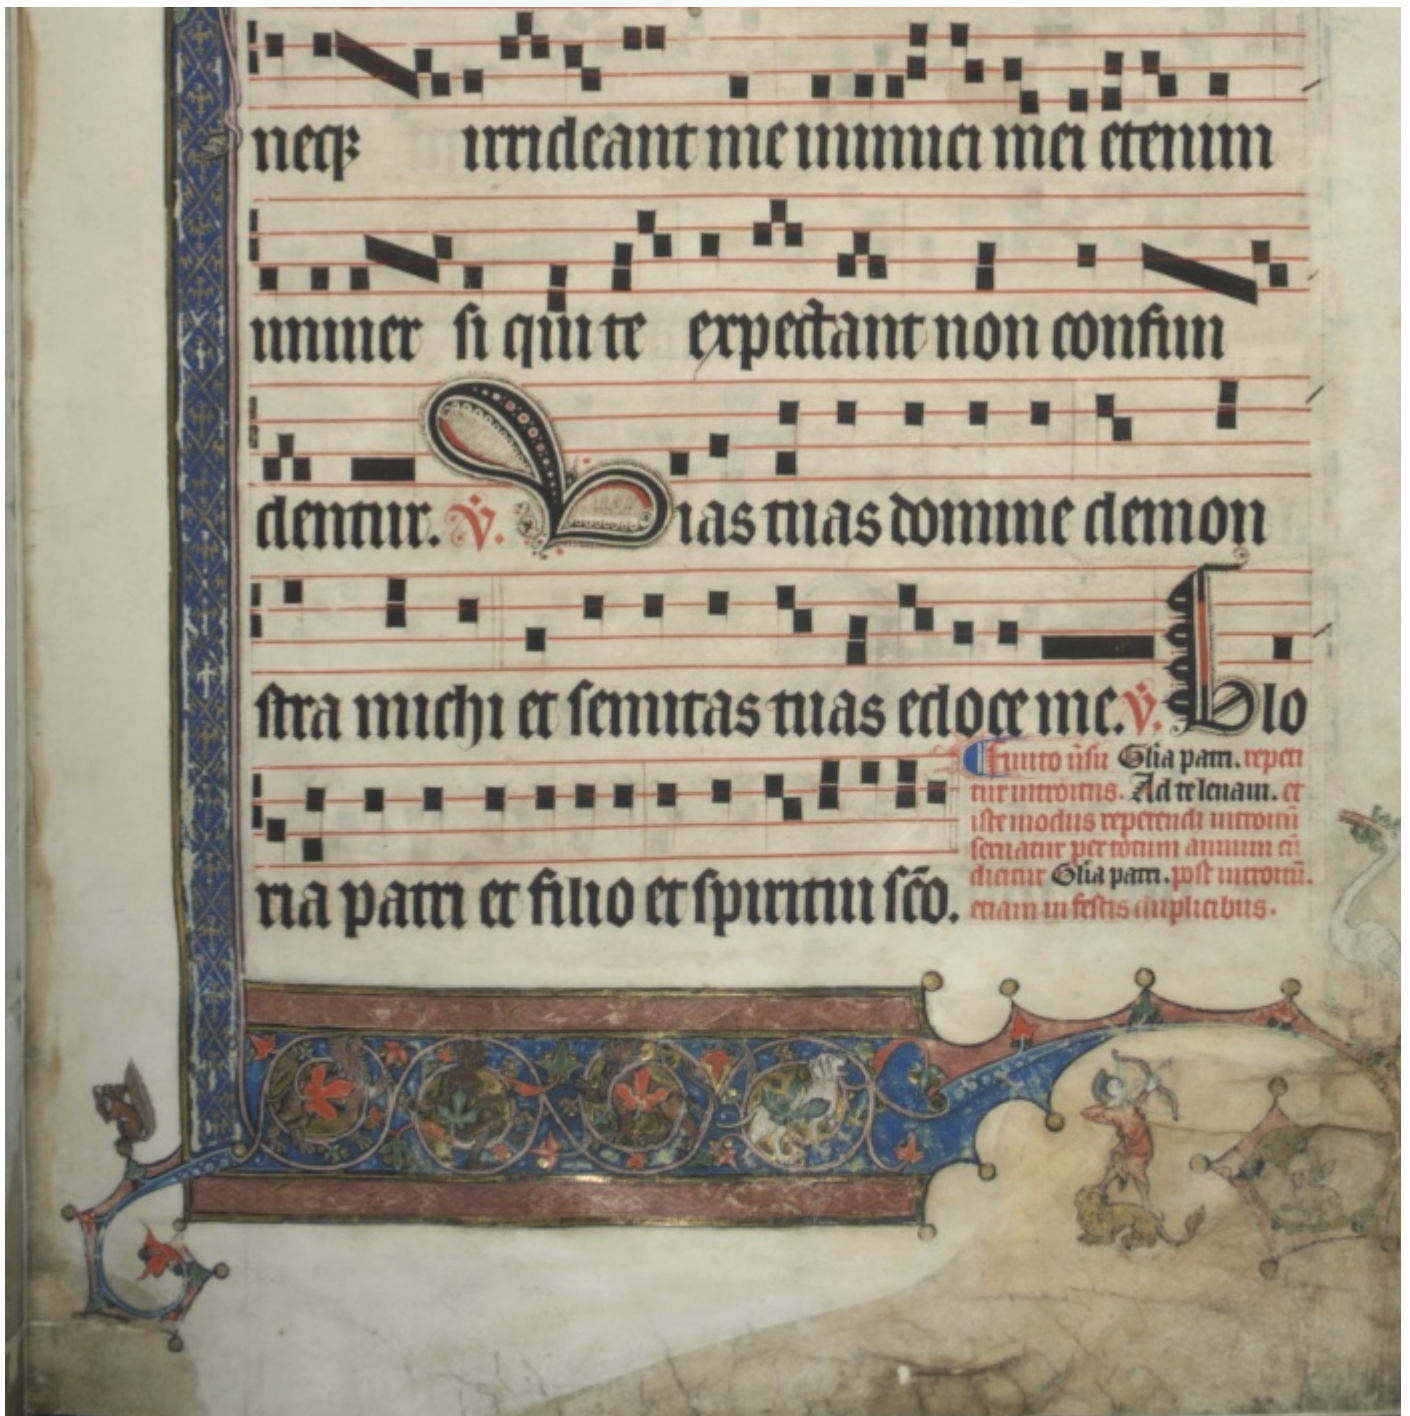 neqꝫ irrideant me inimici mei etenim
univer si qui te expectant non confun
dentur. V̇. Vias tuas domine demon
stra michi et semitas tuas edoce me. V̇. Glo
ria patri et filio et spiritui sc̄o.
Finito v̄su Gl̄ia patri. repeti
tur introitus. Ad te levavi. et
iste modus repetendi introitū
servatur per totum annum cū
dicitur Gl̄ia patri. post introitū.
etiam in festis duplicibus.